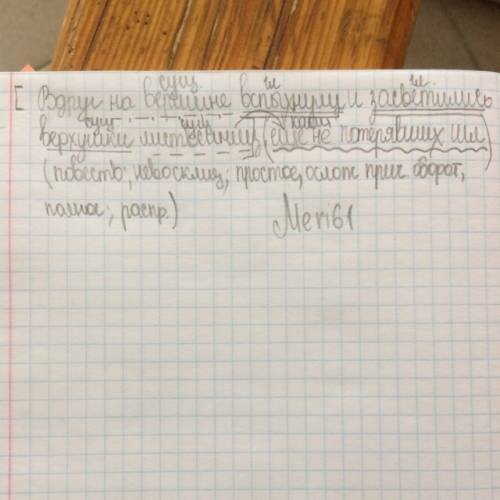 сущ. гл. гл.
[ Вдруг на вершине вспыхнули и засветились
сущ. сущ.
верхушки лиственниц, (ещё не потерявших
(повеств., невосклиц., простое, ослож. прич. оборот,
полное, распр.) Meri61